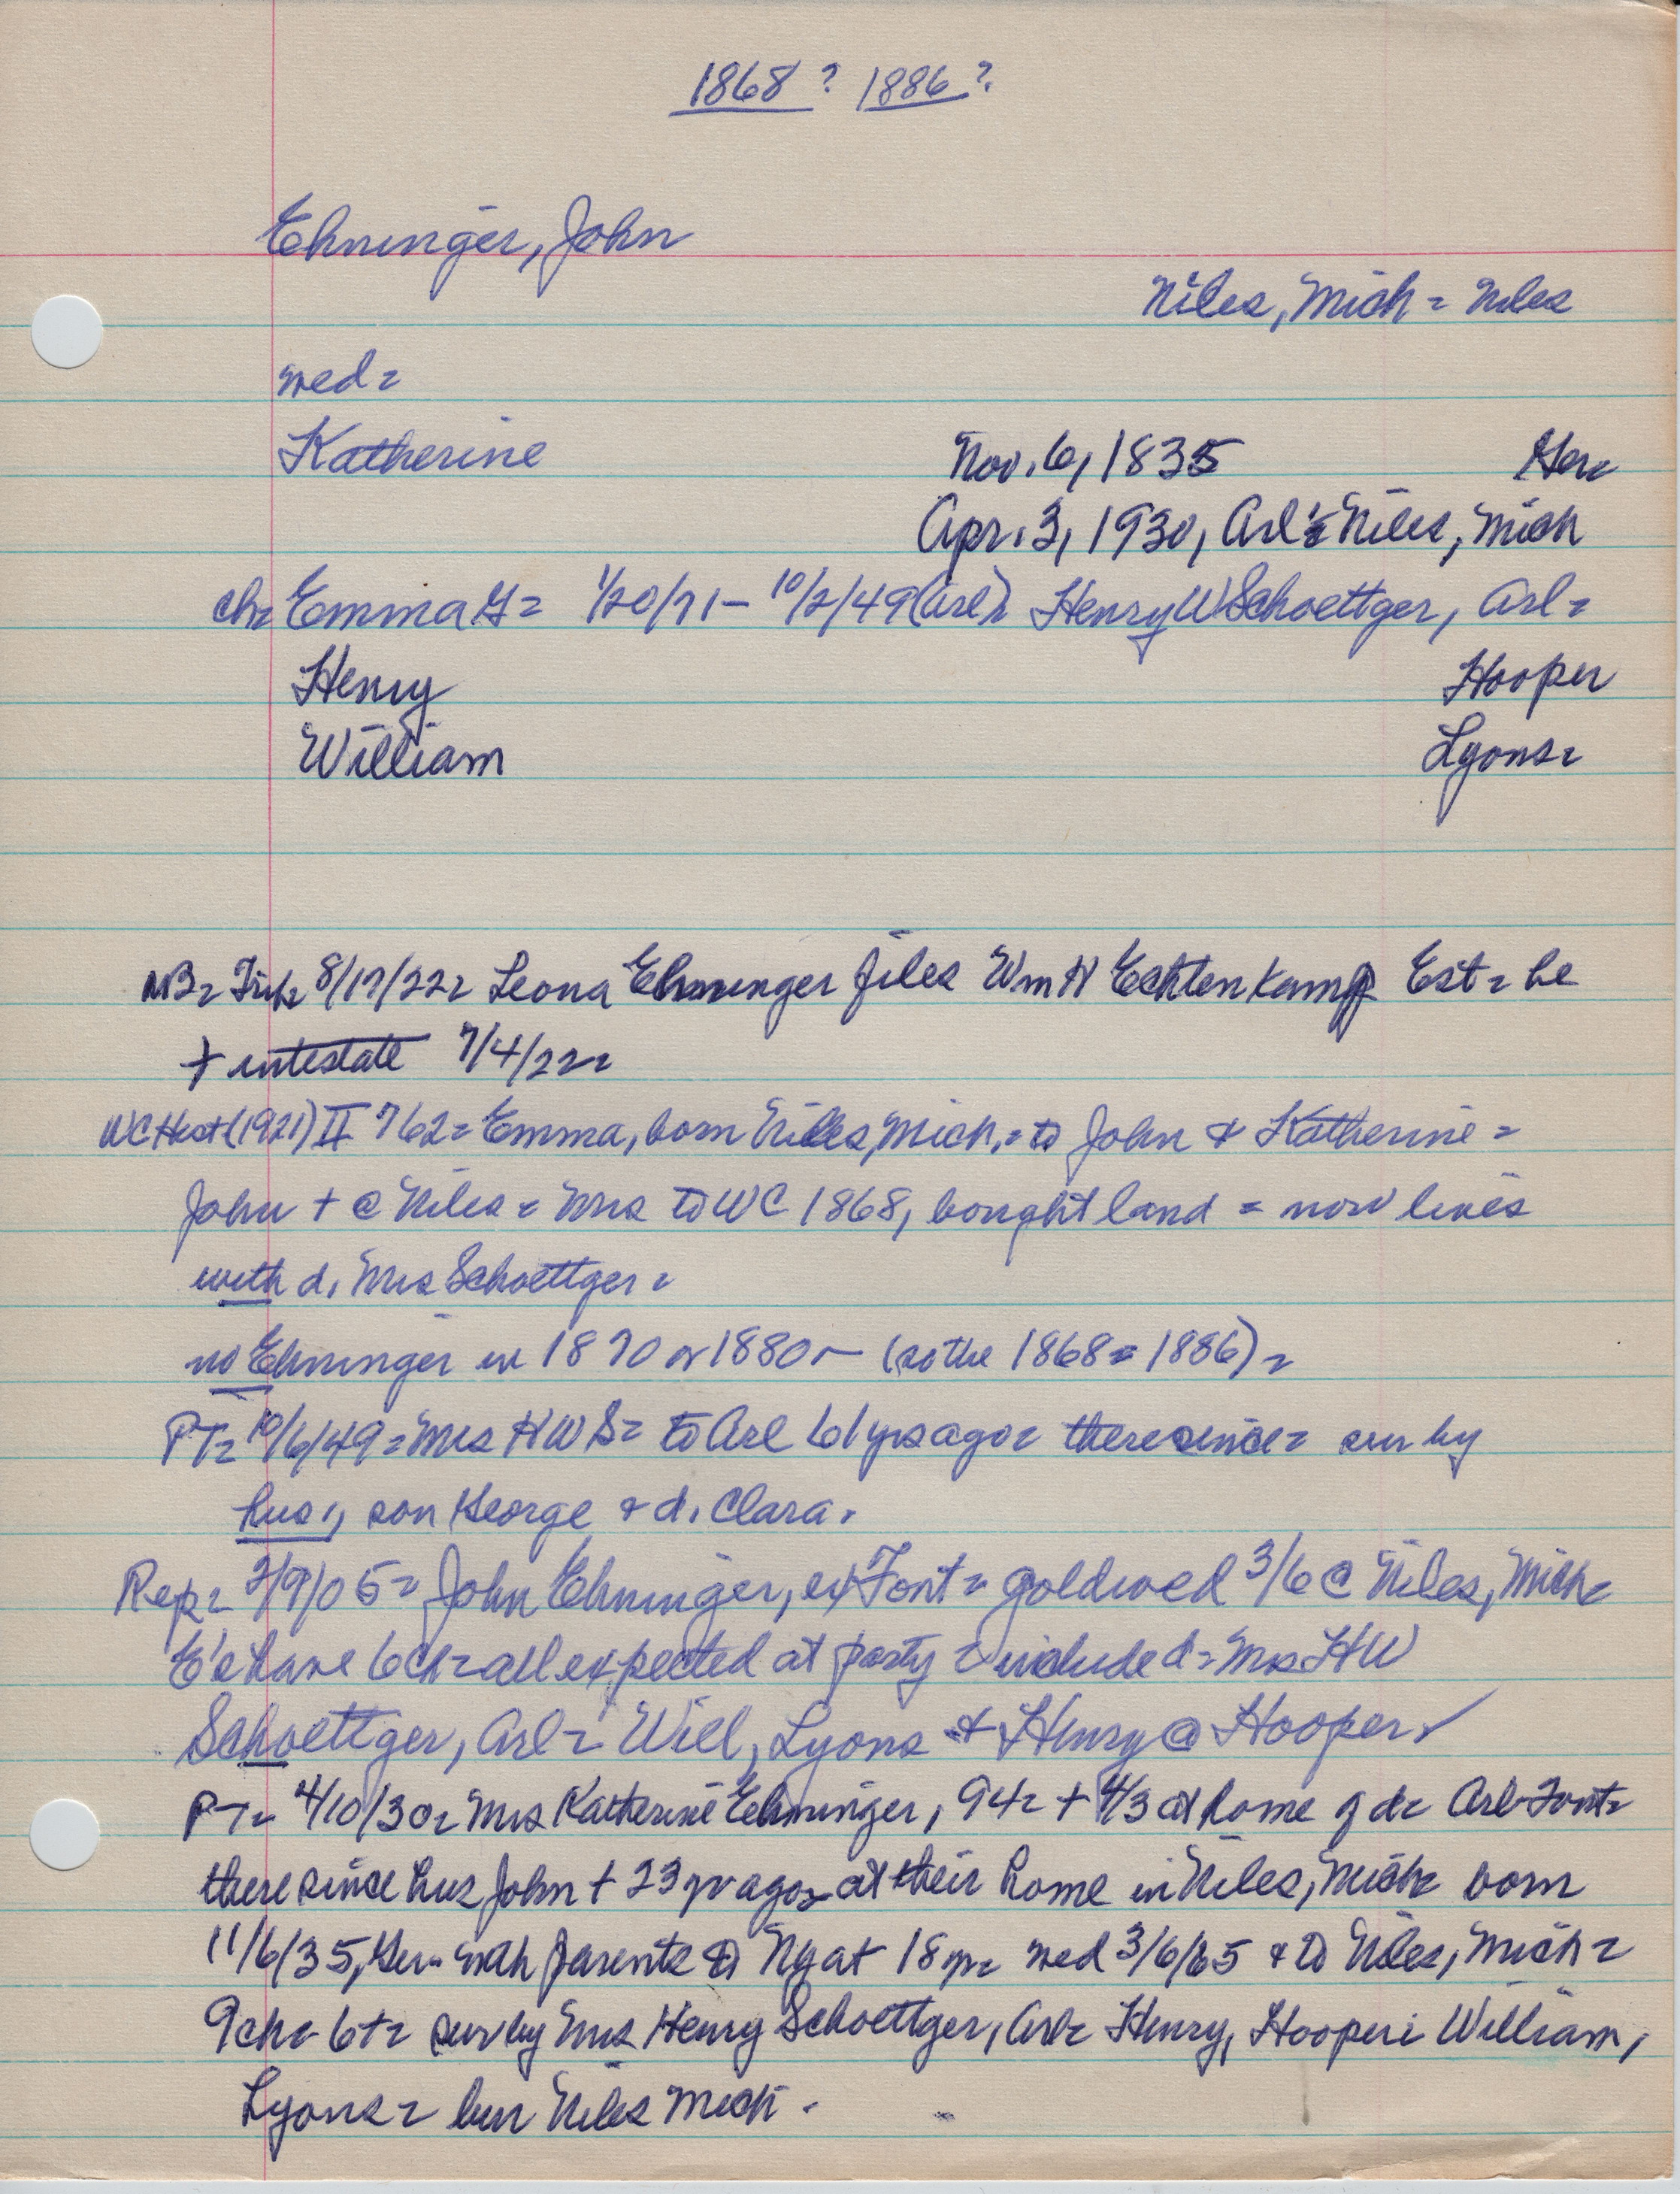 1868? 1886?
Ehninger, John
Niles, Mich = Niles
wed =
Katherine Nov. 6, 1835 Ger =
Apr. 3, 1930, Arl = Niles, Mich
ch = Emma G = 1/20/71 - 10/2/49 (Arl) = Henry W Schoettger, Arl =
Henry Hooper
William Lyons =
NB = Trib = 8/17/22 = Leona Ehninger files Wm H Echtenkamp Est = he
+ intestate 7/4/22 =
WC Hist (1921) II 762 = Emma, born Niles, Mich. = to John & Katherine =
John + @ Niles = Mrs to WC 1868, bought land = now lives
with d. Mrs Schoettger =
no Ehninger in 1870 or 1880 - (so the 1868 = 1886) =
PT = 10/6/49 = Mrs HWS = to Arl 61 yrs ago = there since = sur by
hus., son George & d. Clara.
Rep = 3/9/05 = John Ehninger, ex Font = gold wed 3/6 @ Niles, Mich =
E's have 6 ch = all expected at party = include d = Mrs HW
Schoettger, Arl = Will, Lyons & Henry @ Hooper ✓
PT = 4/10/30 = Mrs Katherine Ehninger, 94 = + 4/3 at home of d = Arl - Font =
there since hus John + 23 yr ago = at their home in Niles, Mich = born
11/6/35, Ger = with parents to NY at 18 yr = wed 3/6/65 & to Niles, Mich =
9 ch = 6 + = sur by Mrs Henry Schoettger, Arl = Henry, Hooper; William,
Lyons = bur Niles Mich.